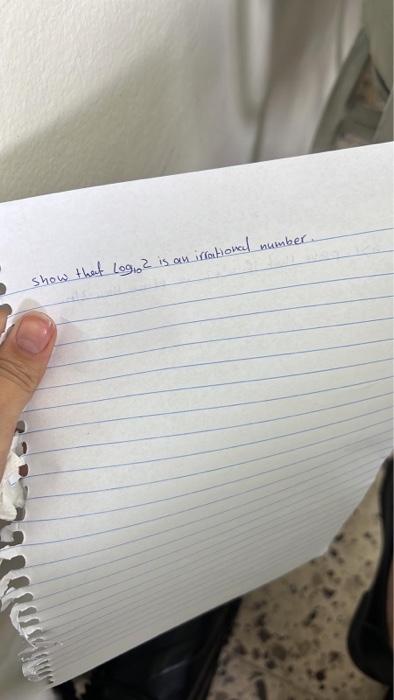 show that Log₁₀2 is an irrational number.